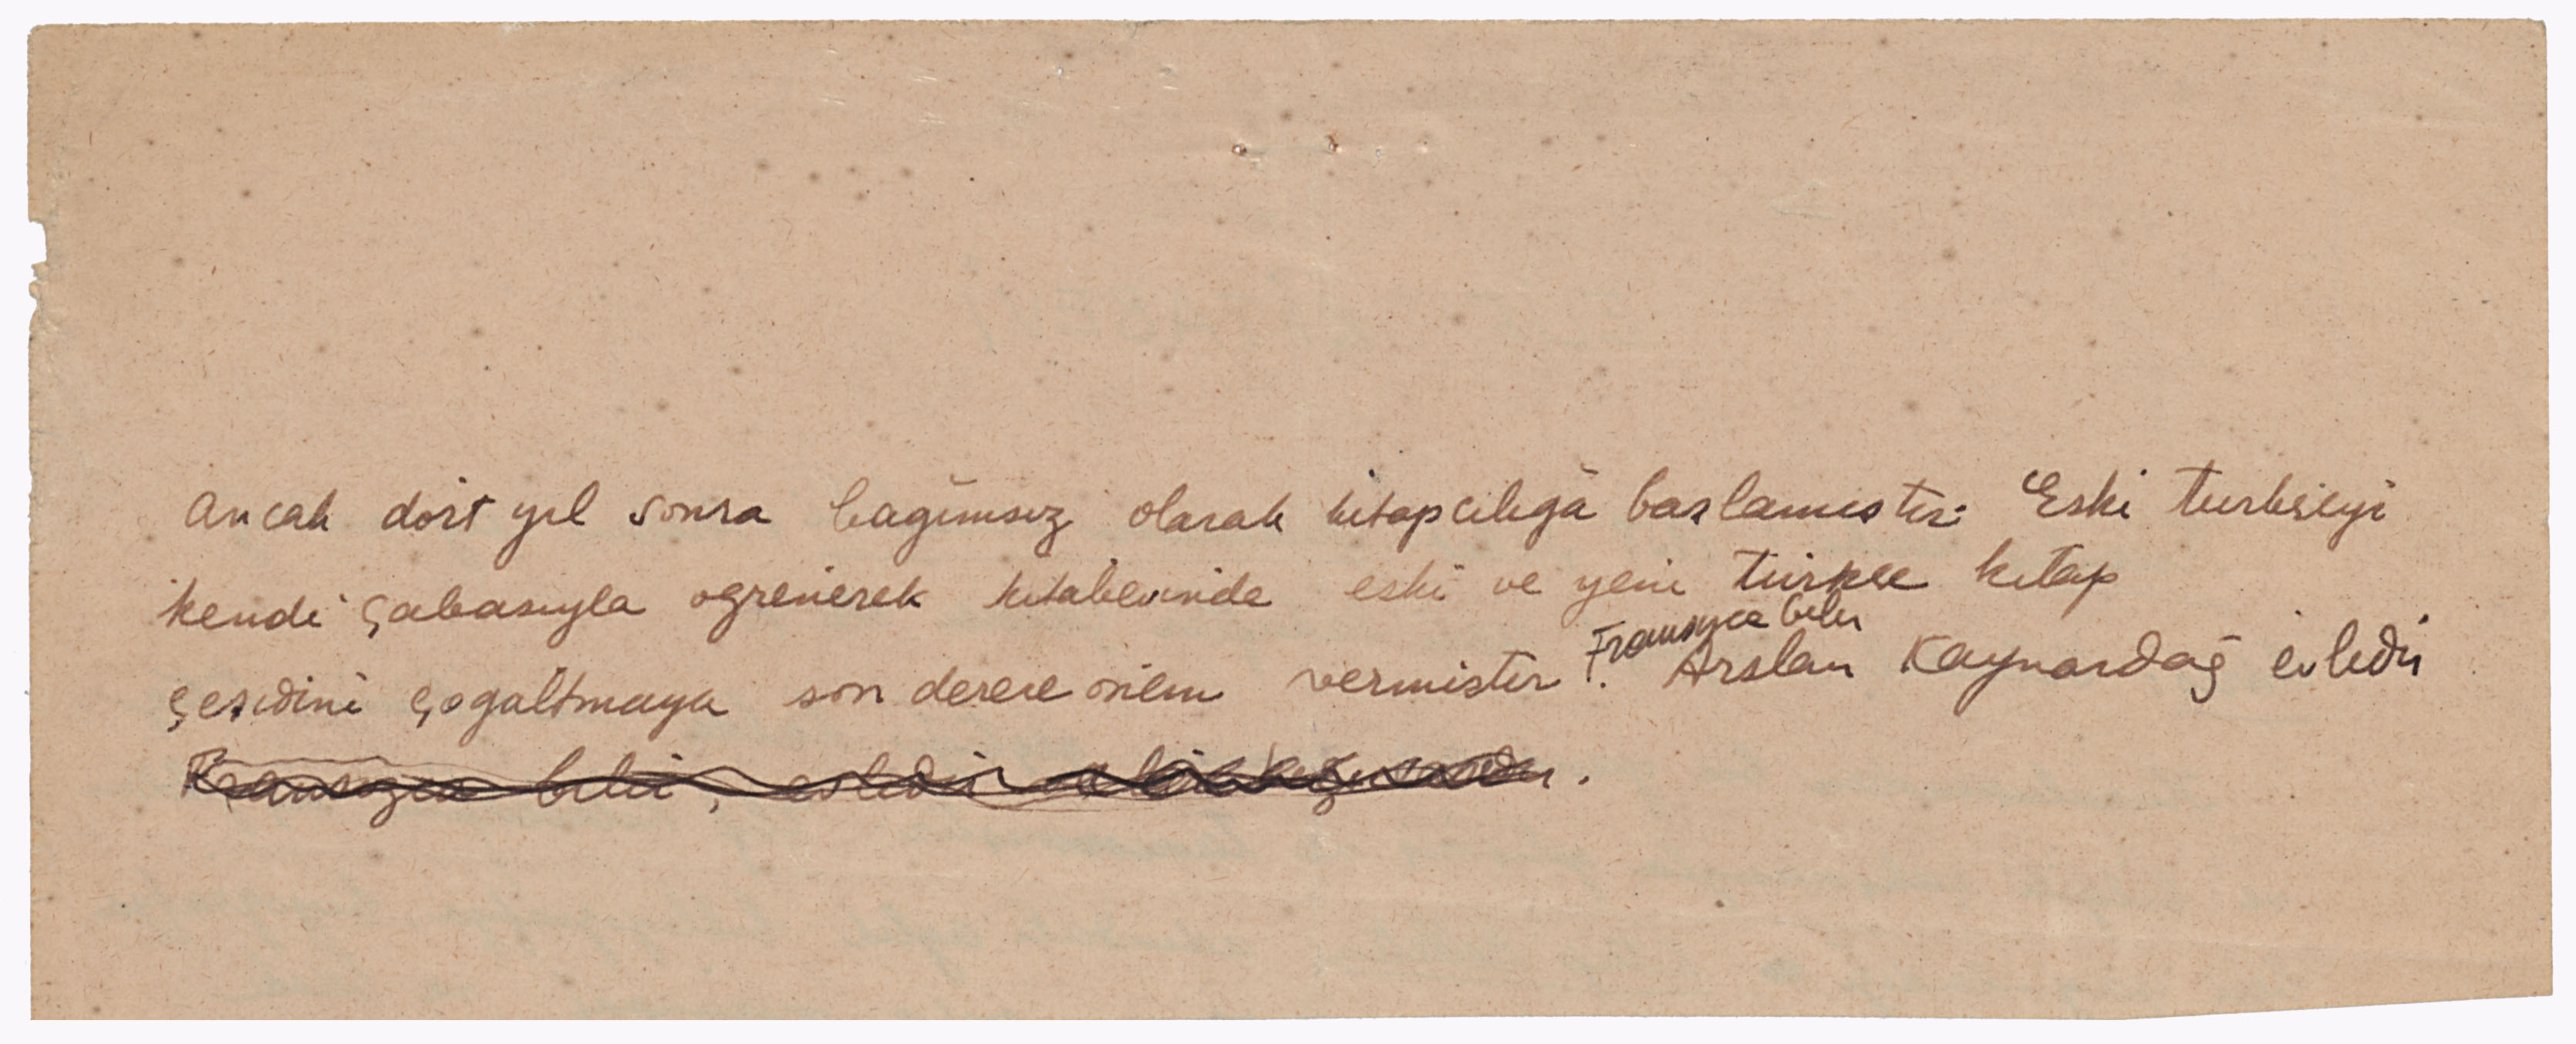 Ancak dört yıl sonra bağımsız olarak kitapçılığa başlamıştır. Eski türkçeyi
kendi çabasıyla öğrenerek kitabevinde eski ve yeni türkçe kitap
Fransızca bilir
çeşidini çoğaltmaya son derece önem vermiştir. Arslan Kaynardağ evlidir
Fransızca bilir, evlidir